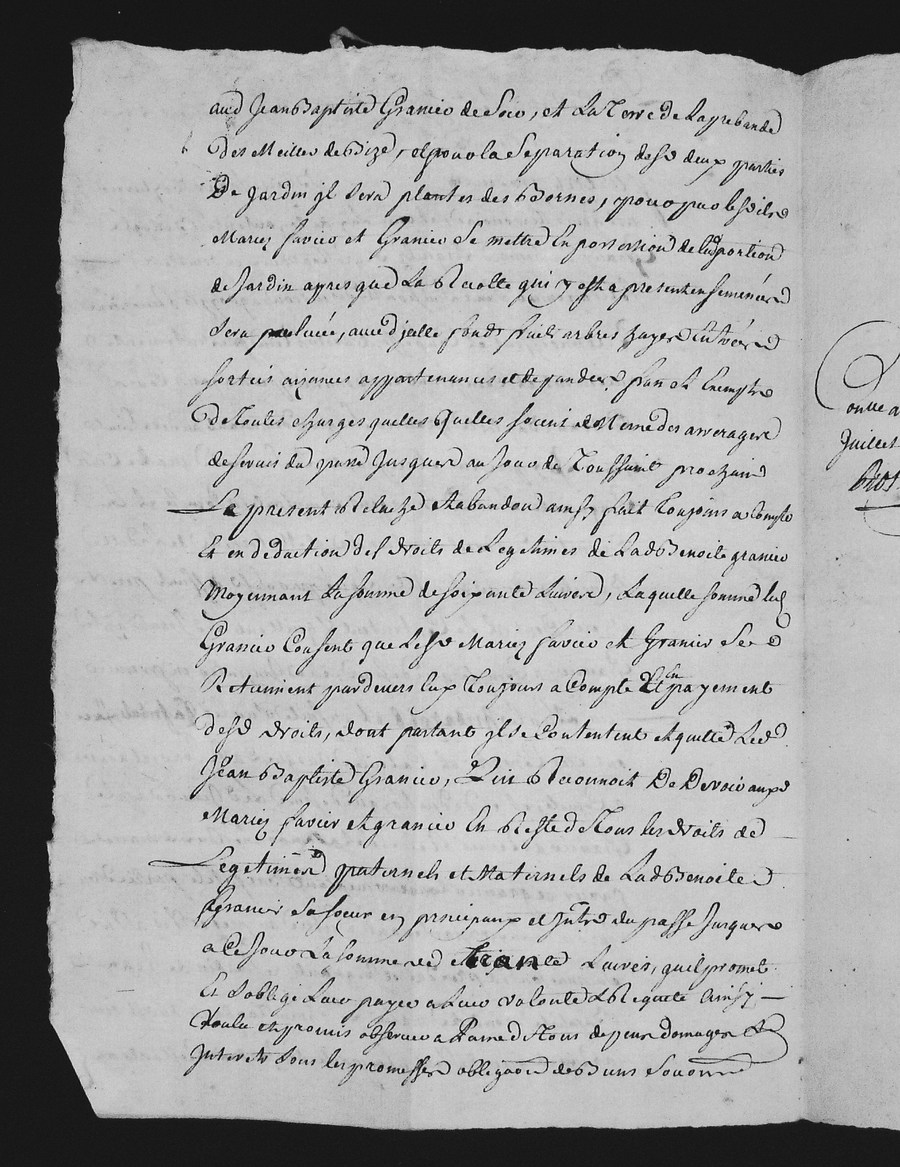 aud Jean Baptiste Granier de Soir, et La Terre de La prebande
des Meilles de Bize, et pour la Separation desd deux parties
De Jardin jl sera plantés des Bornes, pour par lesd
Mariez favier et Granier Se mettre En possession de lad portion
de Jardin apres que La Recolte qui y est a present ensemencée
Sera , avec jcelle fonds fruits arbres hayes Entrées
sorties aizances appartenances et dependces fran et Exempte
de Toutes charges quelles quelles soient et Meme des arrerages
de servis du passé Jusques au Jour de Toussaint prochain
Le present Relache et abandon ainsy fait Toujours a Compte
Et en deduction desd droits de Legitimes de Lad Benoite granier
Moyennant La somme de soixante Livres, Laquelle somme led
Granier Consent que Lesd Mariez favier et Granier Se
Retiennent pardevers Eux Toujours a Compte Et En payement
desd droits, dont partant jls se Contentent et quitte Led
Jean Baptiste Granier, Qui Reconnoit De Devoir auxd
Mariez favier et granier En Reste de Tous les droits de
Legitimes paternels et Maternels de Lad Benoite
Granier Sa soeur en principaux et Jntrets du passé Jusques
a Ce Jour La somme de Livres, quil promet
Et soblige Leur payer a Leur volonté et Requete Ainsy
Voulu et promis observer a Peine de Tous depens domages Et
Jnterets Sous les promesses obligaons de Biens
onlle a
Juillet